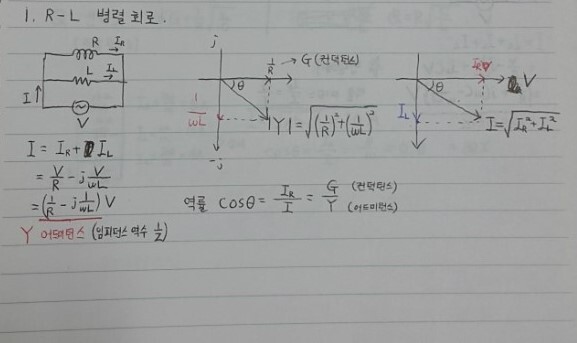 1. R-L 병렬 회로.
R I_R
L I_L
I
V
j
1/R → G (컨덕턴스)
θ
1/ωL
|Y| = √((1/R)² + (1/ωL)²)
-j
I_R
V
θ
I_L
I = √(I_R² + I_L²)
I = I_R + I_L
= V/R - j V/ωL
= (1/R - j 1/ωL) V
Y 어드미턴스 (임피던스 역수 1/Z)
역률 cosθ = I_R/I = G/Y (컨덕턴스) (어드미턴스)